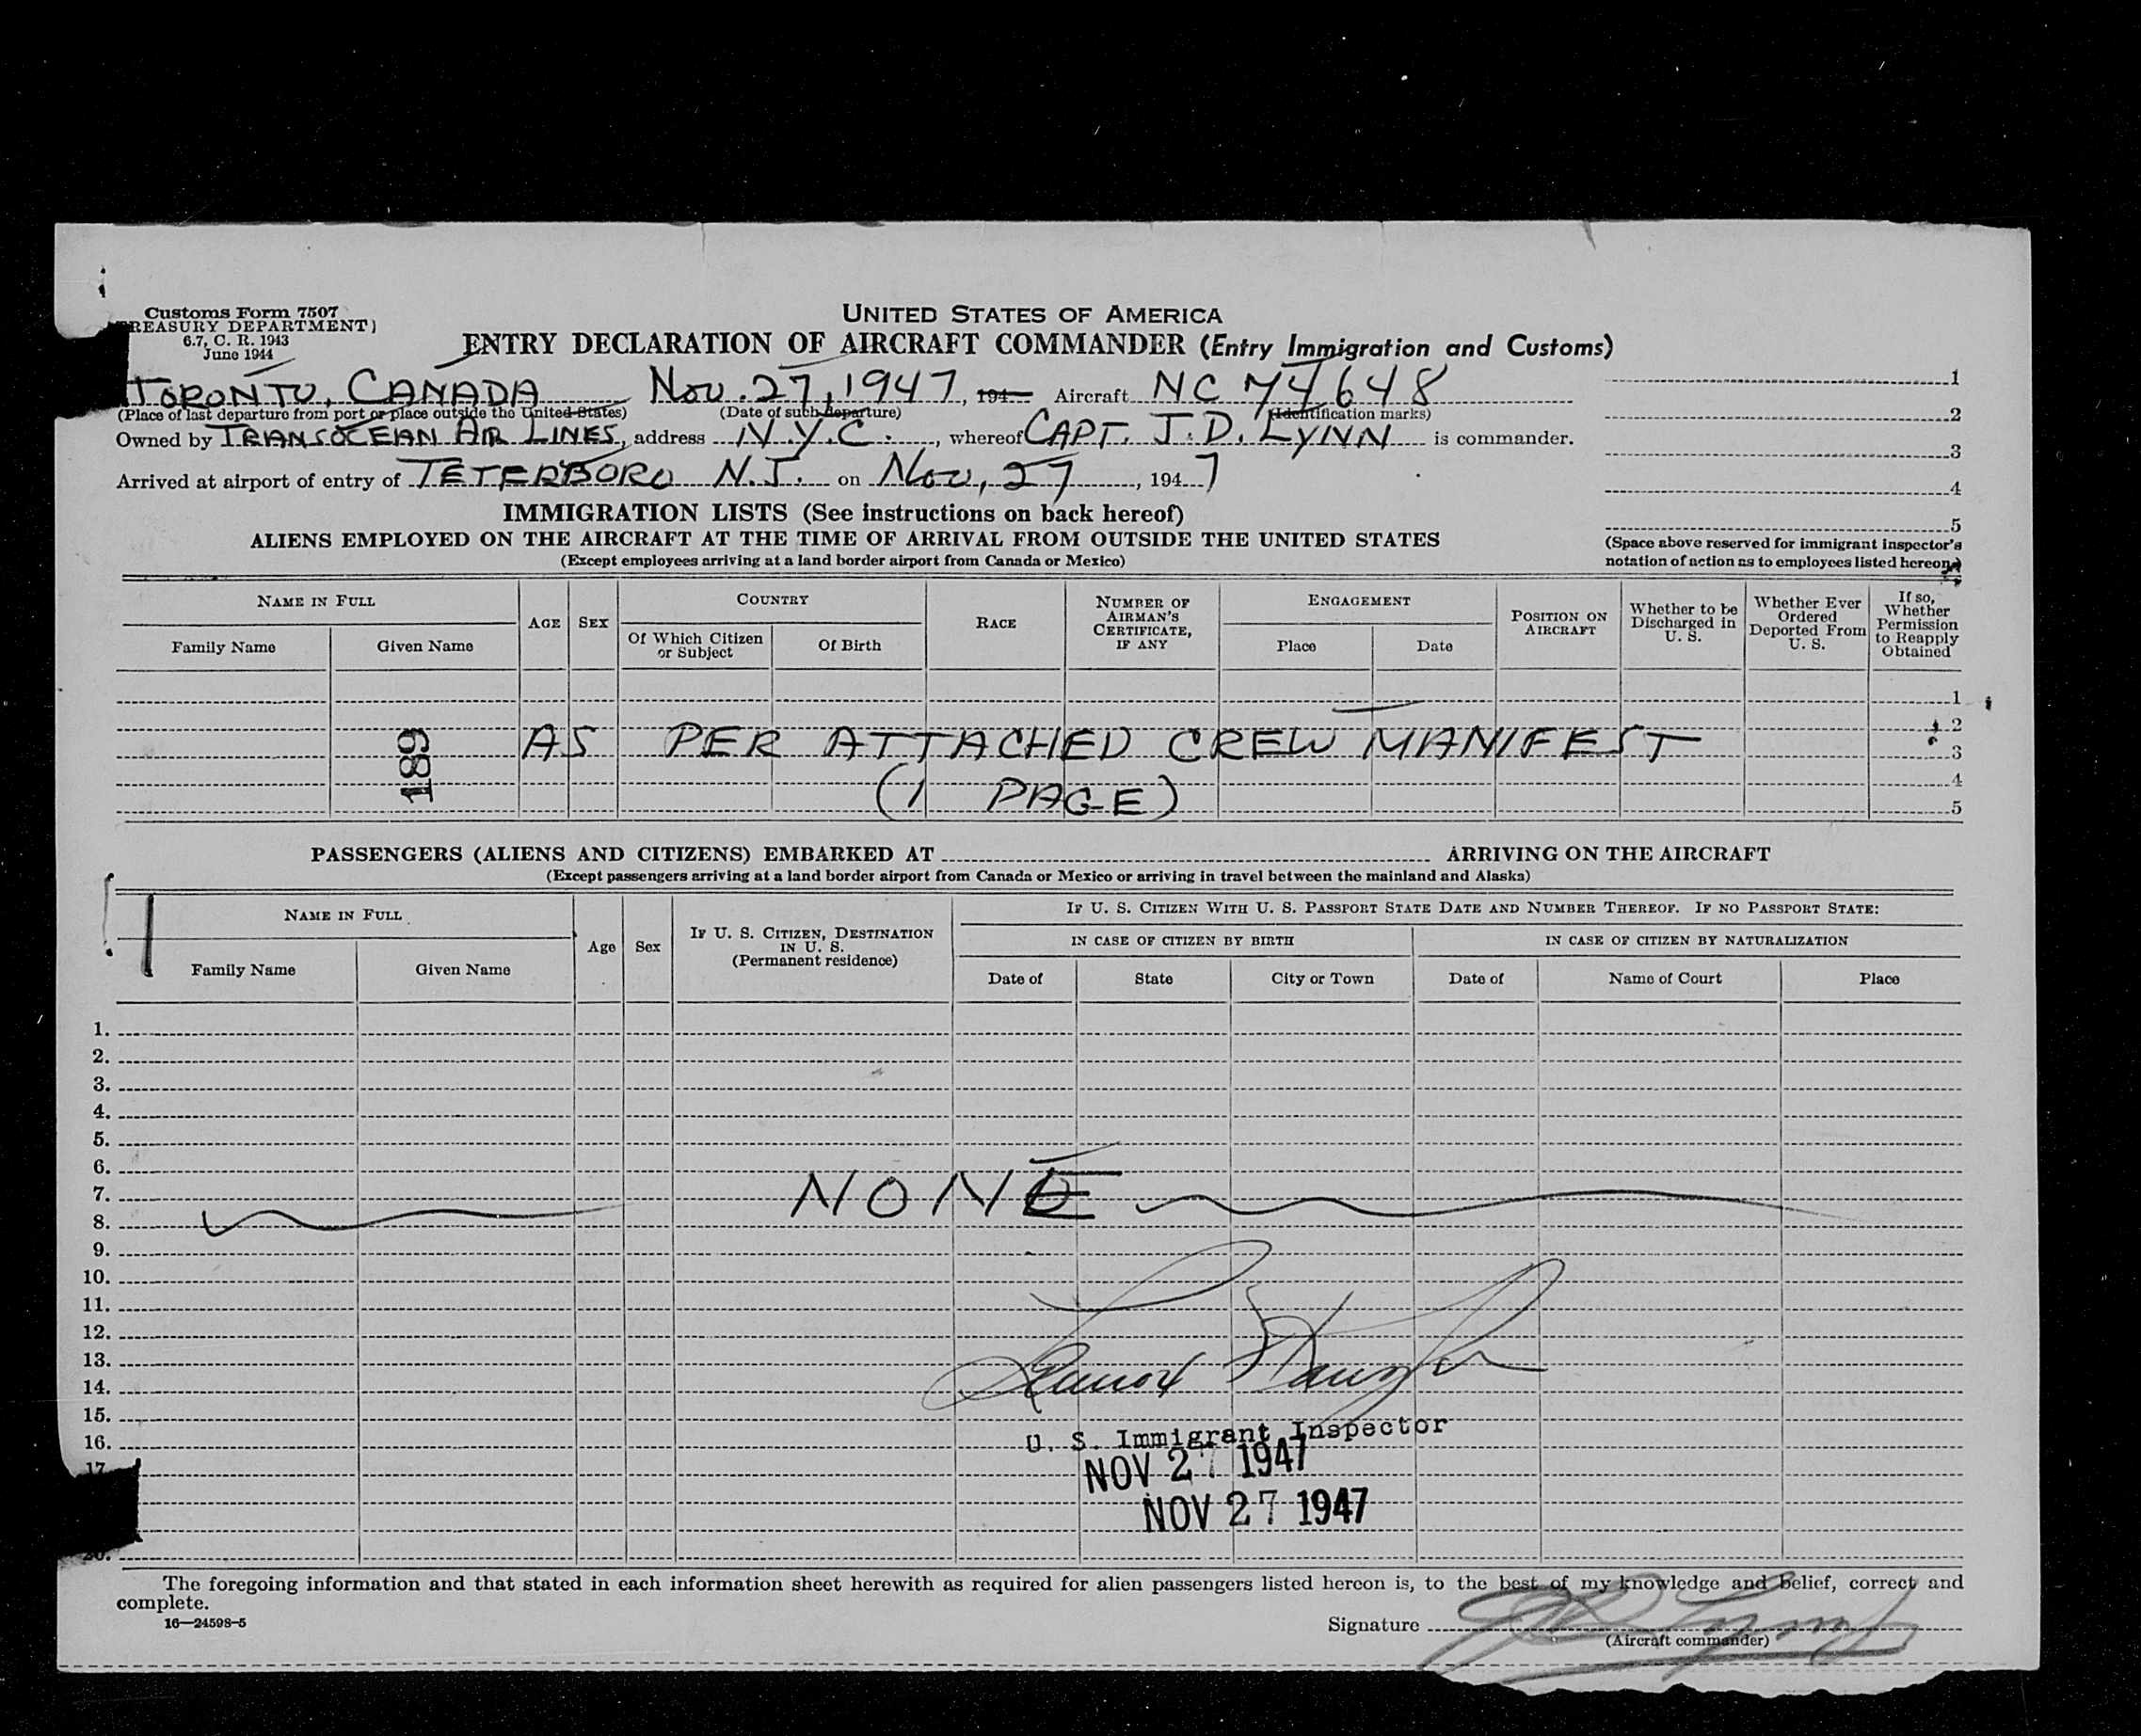 Customs Form 7507
TREASURY DEPARTMENT)
6.7, C. R. 1943
June 1944
UNITED STATES OF AMERICA
ENTRY DECLARATION OF AIRCRAFT COMMANDER (Entry Immigration and Customs)
TORONTO, CANADA Nov. 27, 1947, 194 Aircraft NC 74648
(Place of last departure from port or place outside the United States) (Date of such departure) (Identification marks)
Owned by TRANSOCEAN AIR LINES, address N.Y.C., whereof CAPT. J.D. LYNN is commander.
Arrived at airport of entry of TETERBORO N.J. on Nov, 27, 1947
1
2
3
4
5
(Space above reserved for immigrant inspector's
notation of action as to employees listed hereon)
IMMIGRATION LISTS (See instructions on back hereof)
ALIENS EMPLOYED ON THE AIRCRAFT AT THE TIME OF ARRIVAL FROM OUTSIDE THE UNITED STATES
(Except employees arriving at a land border airport from Canada or Mexico)
NAME IN FULL
Family Name Given Name
AGE SEX
COUNTRY
Of Which Citizen or Subject Of Birth
RACE
NUMBER OF AIRMAN'S CERTIFICATE, IF ANY
ENGAGEMENT
Place Date
POSITION ON AIRCRAFT
Whether to be Discharged in U. S.
Whether Ever Ordered Deported From U. S.
If so, Whether Permission to Reapply Obtained
1
2
189 AS PER ATTACHED CREW MANIFEST 3
4
(1 PAGE) 5
PASSENGERS (ALIENS AND CITIZENS) EMBARKED AT ARRIVING ON THE AIRCRAFT
(Except passengers arriving at a land border airport from Canada or Mexico or arriving in travel between the mainland and Alaska)
NAME IN FULL
Family Name Given Name
Age Sex
IF U. S. CITIZEN, DESTINATION IN U. S. (Permanent residence)
IF U. S. CITIZEN WITH U. S. PASSPORT STATE DATE AND NUMBER THEREOF. IF NO PASSPORT STATE:
IN CASE OF CITIZEN BY BIRTH IN CASE OF CITIZEN BY NATURALIZATION
Date of State City or Town Date of Name of Court Place
1.
2.
3.
4.
5.
6.
7. NONE
8.
9.
10.
11.
12.
13.
14.
15.
16.
U. S. Immigrant Inspector
17.
NOV 27 1947
NOV 27 1947
20.
The foregoing information and that stated in each information sheet herewith as required for alien passengers listed hereon is, to the best of my knowledge and belief, correct and
complete.
16—24598-5
Signature J D Lynn
(Aircraft commander)